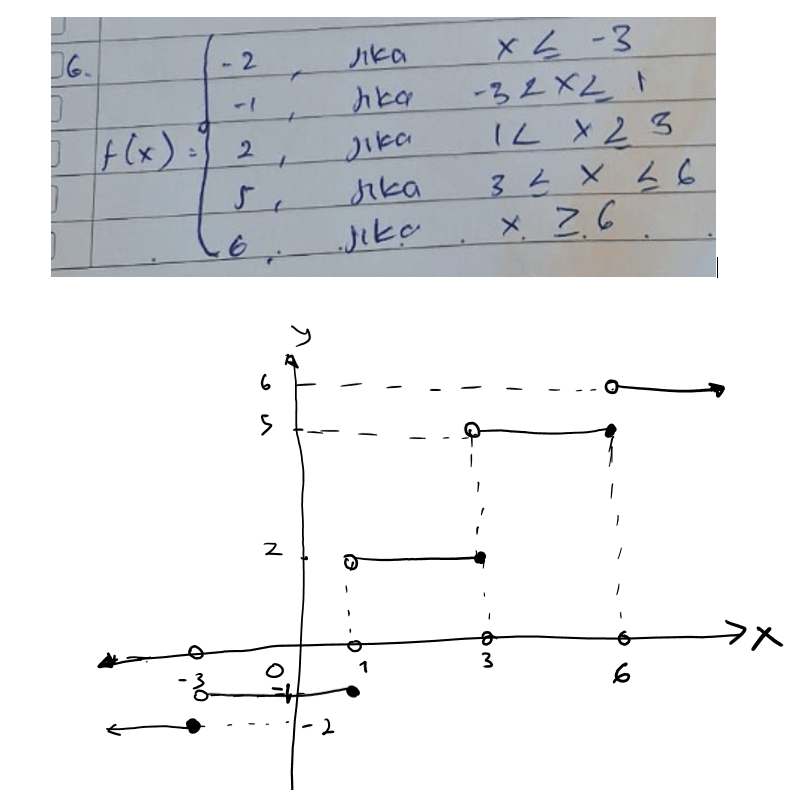 6.
f(x) =
-2, jika x ≤ -3
-1, jika -3 < x ≤ 1
2, jika 1 < x ≥ 3
5, jika 3 ≤ x ≤ 6
6, jika x ≥ 6
y
6
5
2
X
-3
0
1
3
6
-1
-2